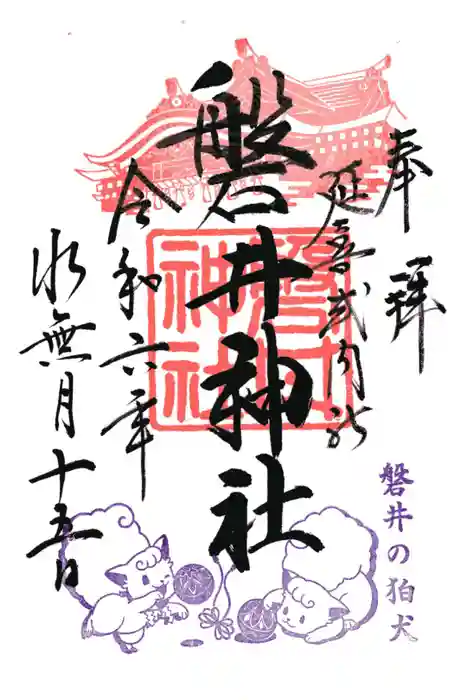 奉拝
延喜式内社
磐井神社
磐井神社
令和六年
水無月十五日
磐井の狛犬